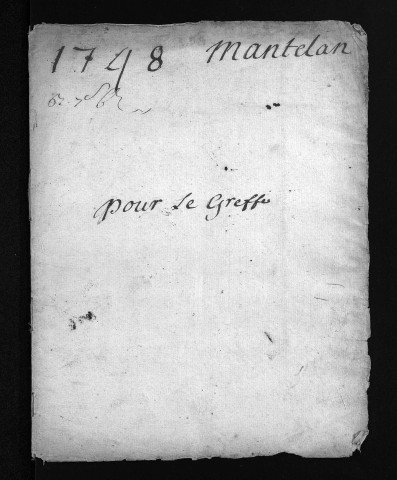 1748 Mantelan
pour Le Greffe